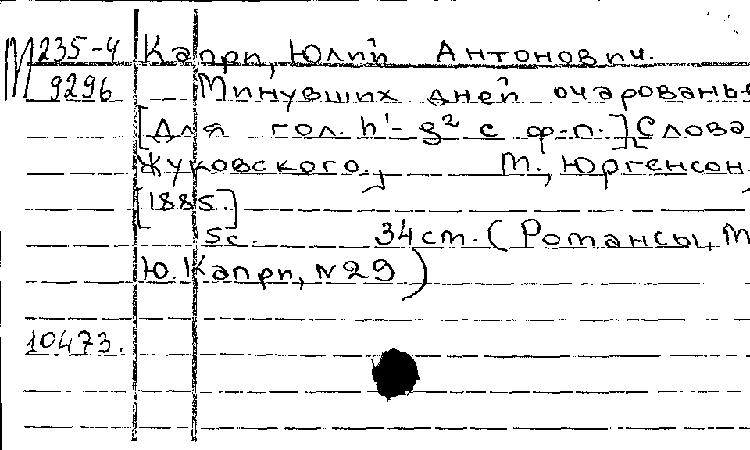 М 235-4 Капри, Юлий Антонович.
9296 Минувших дней очарованье
[Для гол. h'-g² с ф-п.] Слова
Жуковского, М., Юргенсон,
[1885.]
5с. 34см. (Романсы, М
Ю. Капри, N29)
10473.